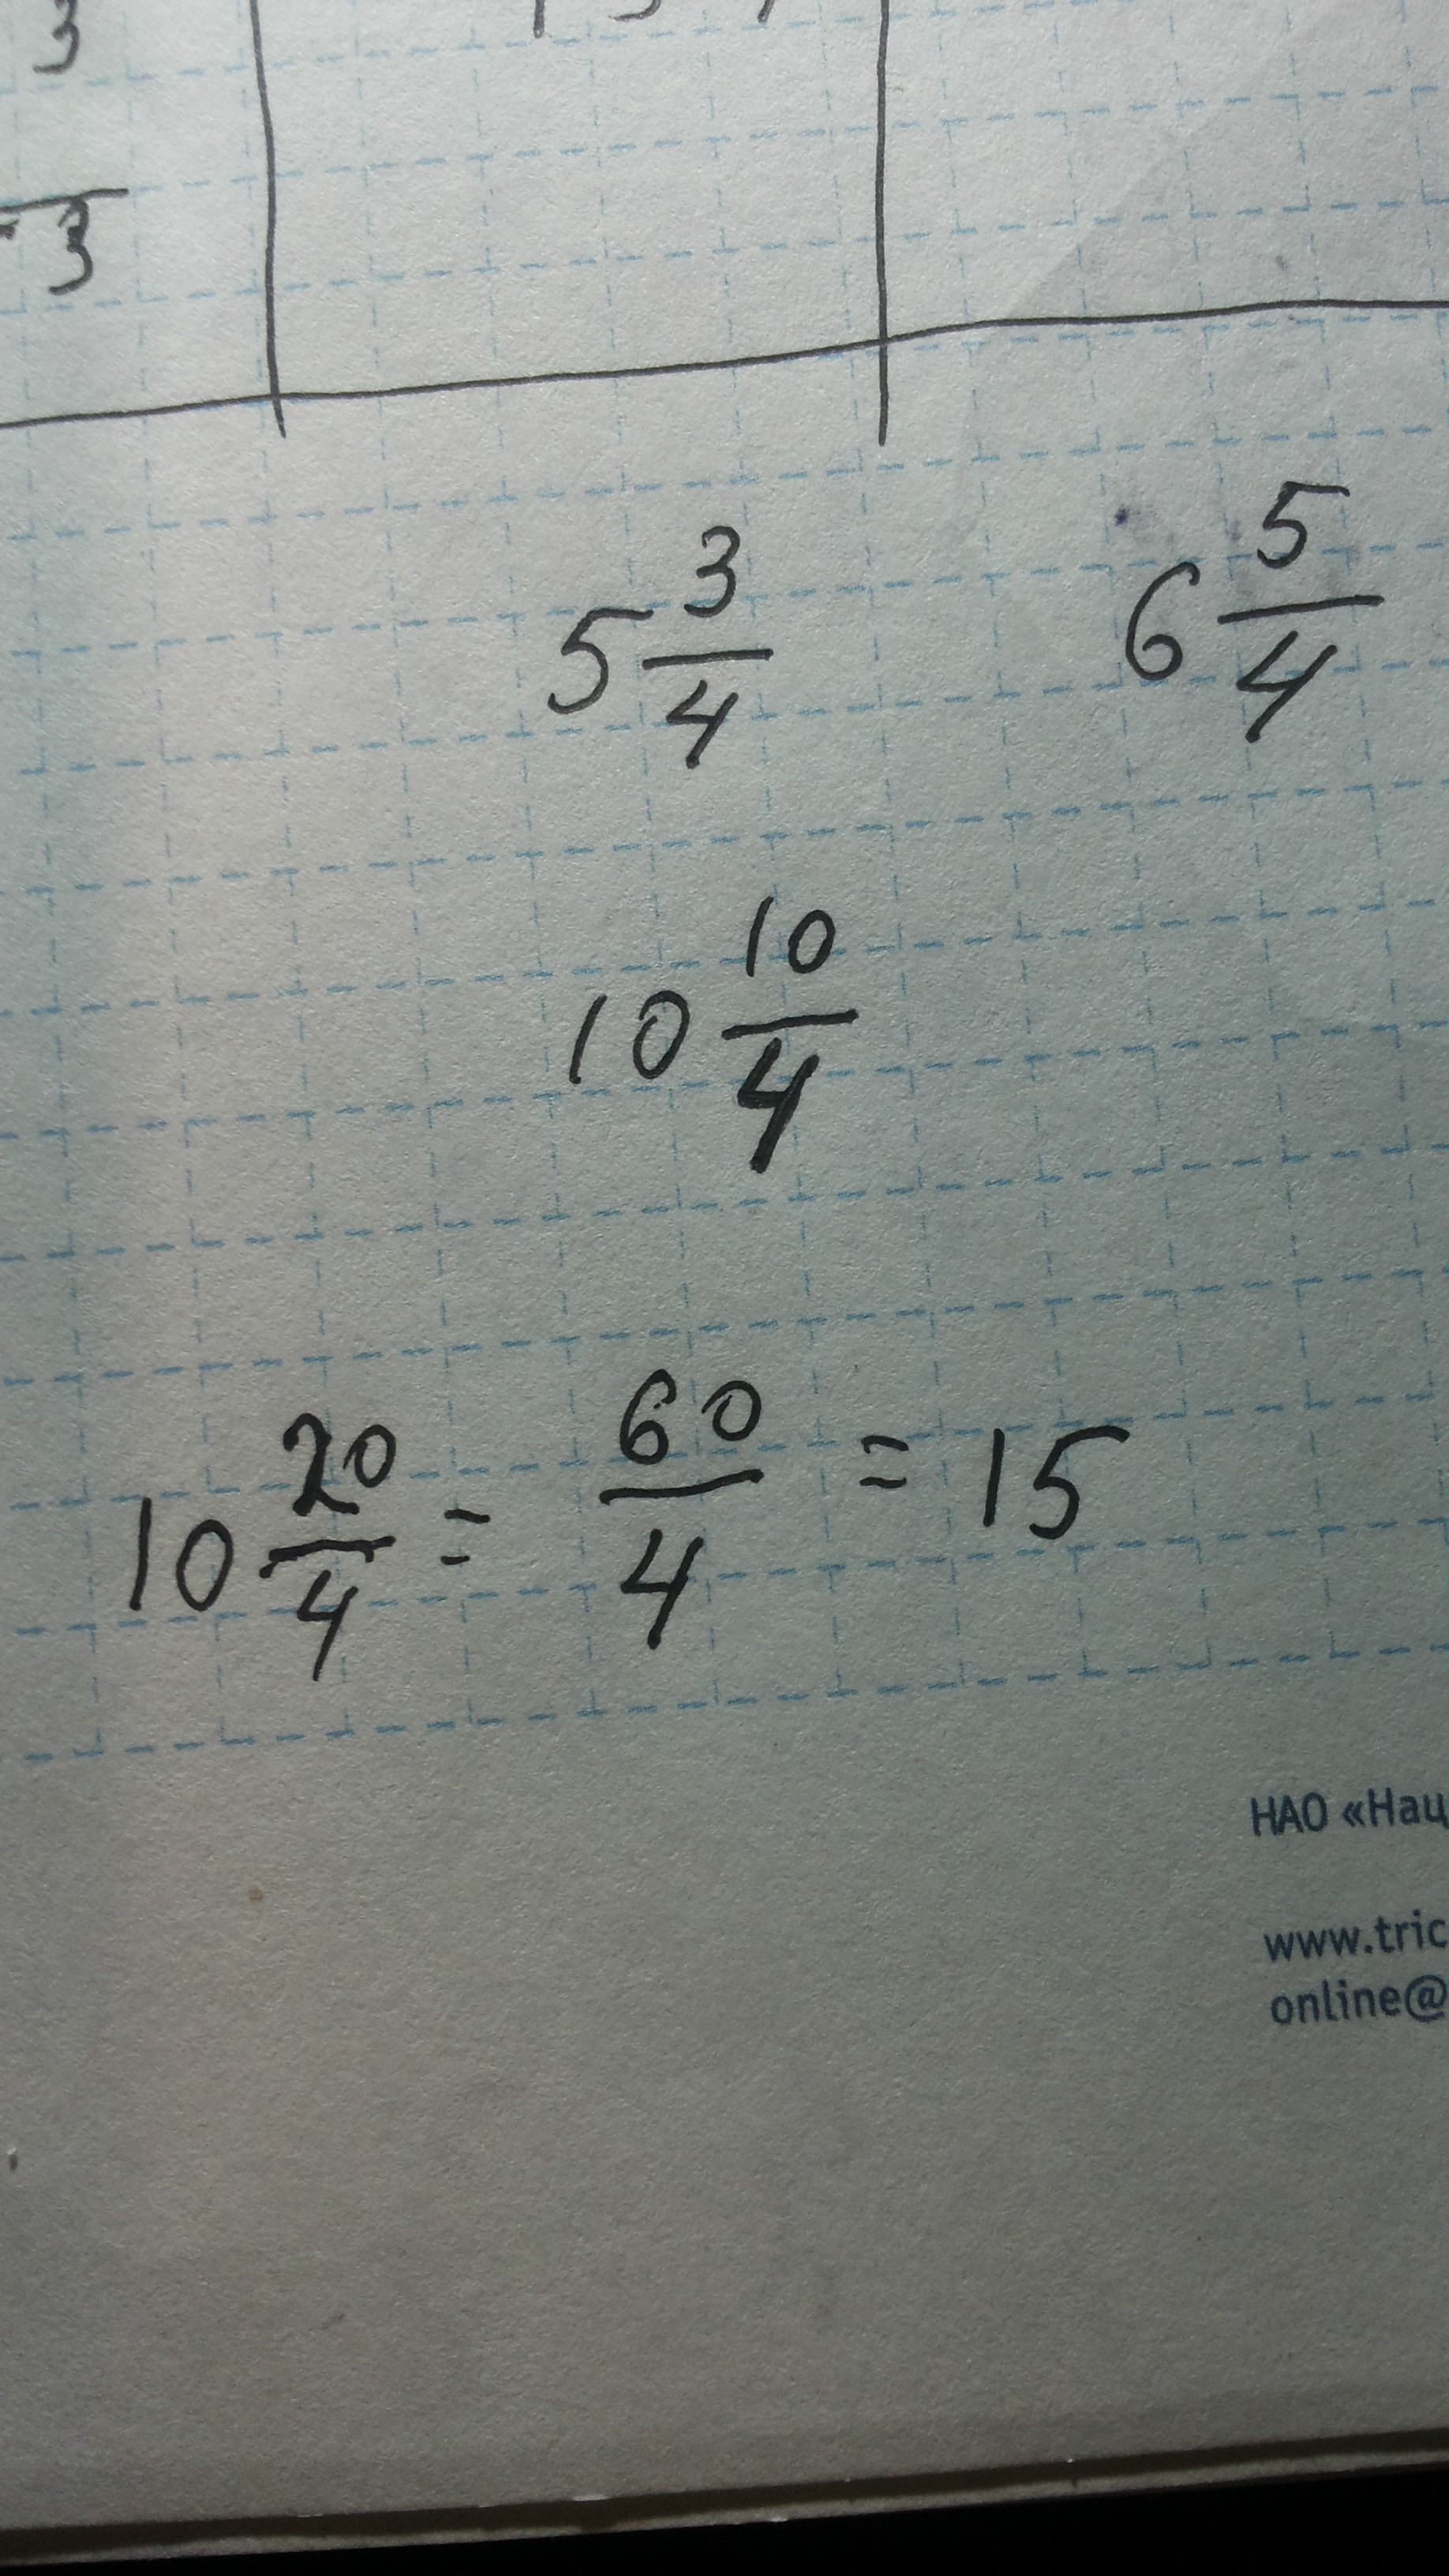 3
3
5 3/4 6 5/4
10 10/4
10 20/4 = 60/4 = 15
НАО «Нац
www.tric
online@